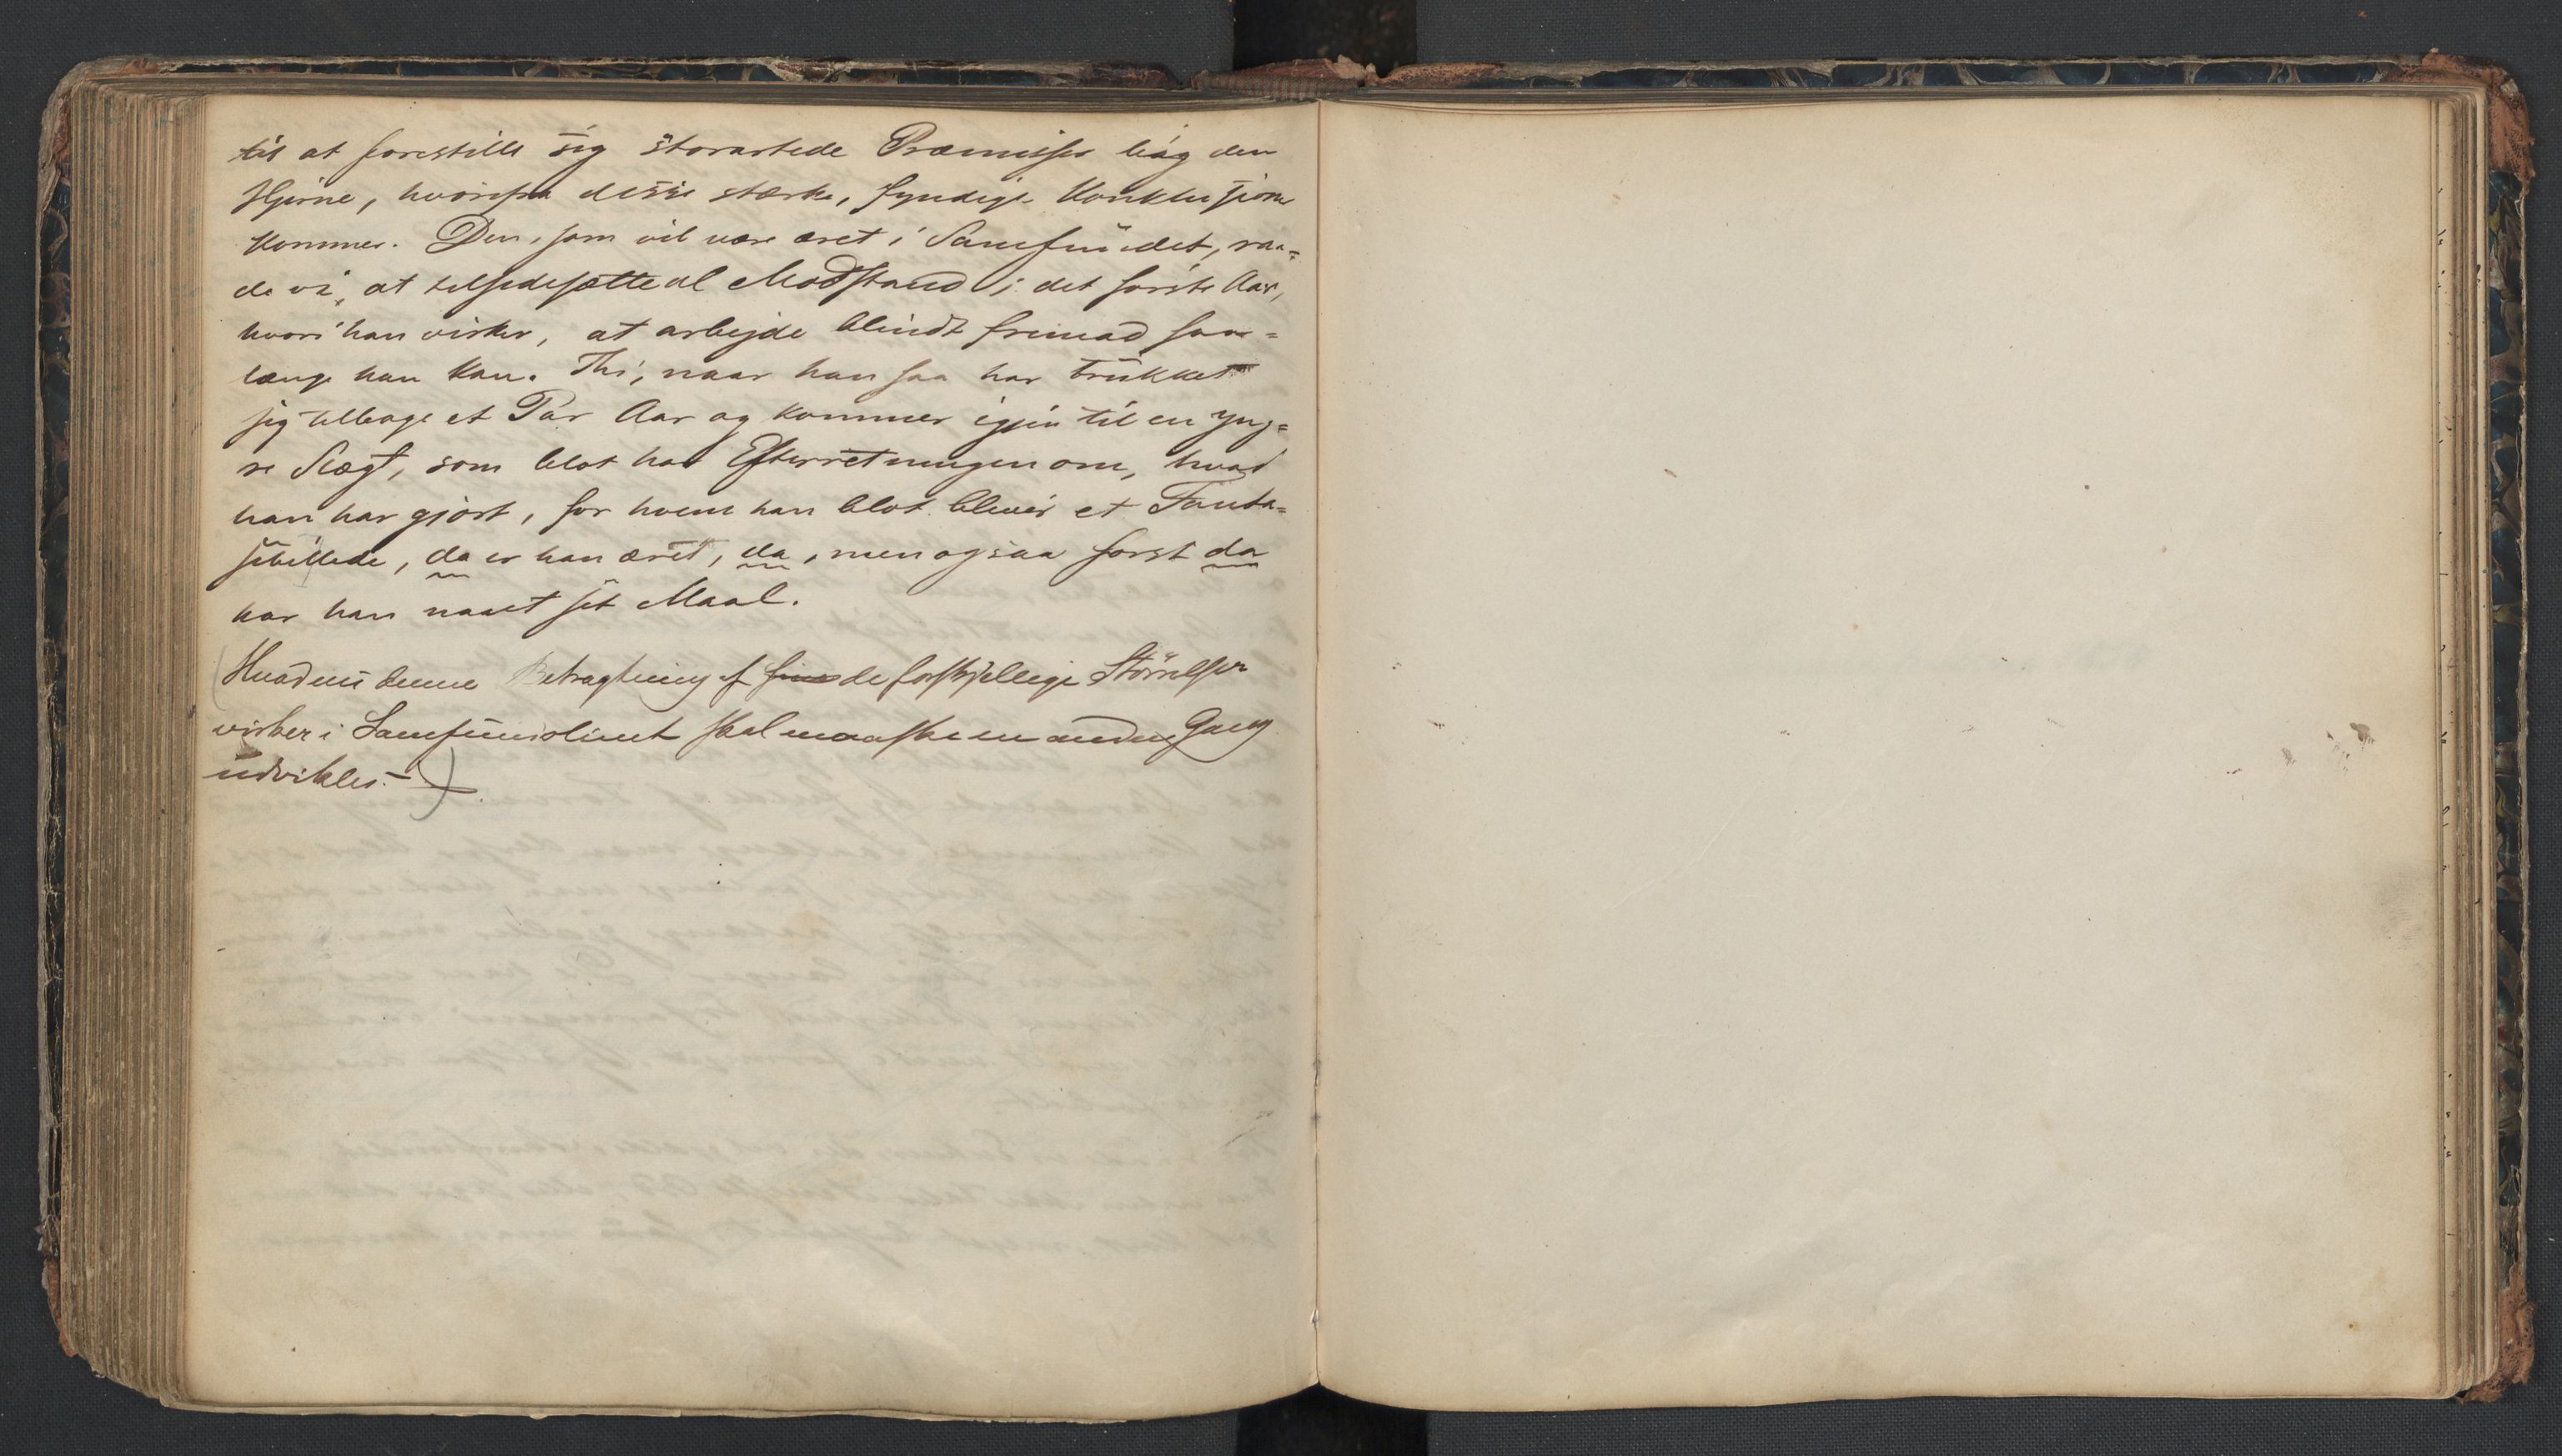 til at forestille sig storartede Præmisser bag den
Hjerne, hvorfra disse stærke, fyndige Konklusjoner
kommer. Den, som vil være æret i Samfundet, raa=
de vi, at tilsidesætte al Modstand i det første Aar,
hvori han virker, at arbejde blindt fremad saa=
længe han kan. Thi, naar han saa har trukket
sig tilbage et Par Aar og kommer igjen til en yng=
re Slægt, som blot har Efterretningen om, hvad
han har gjort, for hvem han blot bliver et Fanta=
sibillede, da er han æret, da, men ogsaa først da
har han naaet sit Maal.
(Hvad nu denne Betragtning af de forskjellige Störrelser
virker i Samfundslivet skal maaske en anden Gang
udvikles. – )